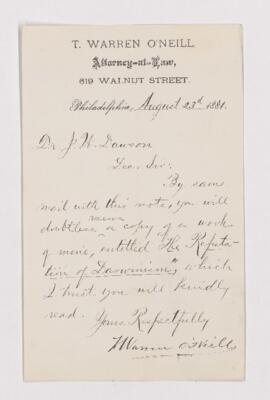 T. WARREN O'NEILL
Attorney-at-Law,
619 WALNUT STREET.
Philadelphia, August 23rd 1881.
Dr. J. W. Dawson
Dear Sir:
By same
mail with this note, you will
receive
doubtless a copy of a work
of mine, entitled "The Refuta-
tion of Darwinism", which
I trust you will kindly
read.
Yours Respectfully
T Warren O'Neill